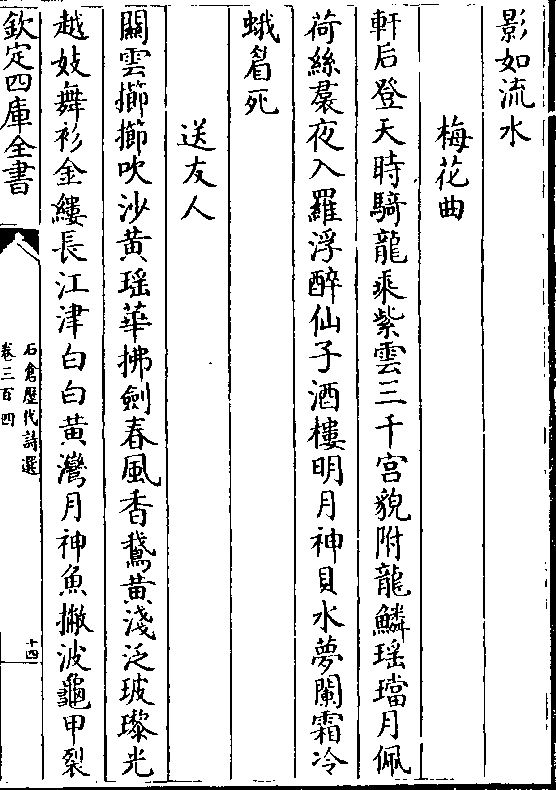 影如流水
梅花曲
軒后登天時騎龍乘紫雲三千宫貌附龍鱗瑶璫月佩
荷絲裠夜入羅浮醉仙子酒樓明月神貝水夢闌霜冷
蛾眉死
送友人
關雲擳擳吹沙黄瑶華拂劍春風香鵞黄淺泛玻瓈光
越妓舞衫金縷長江津白白黄灣月神魚撇波龜甲裂
欽定四庫全書
石倉歴代詩選
卷三百四
十四